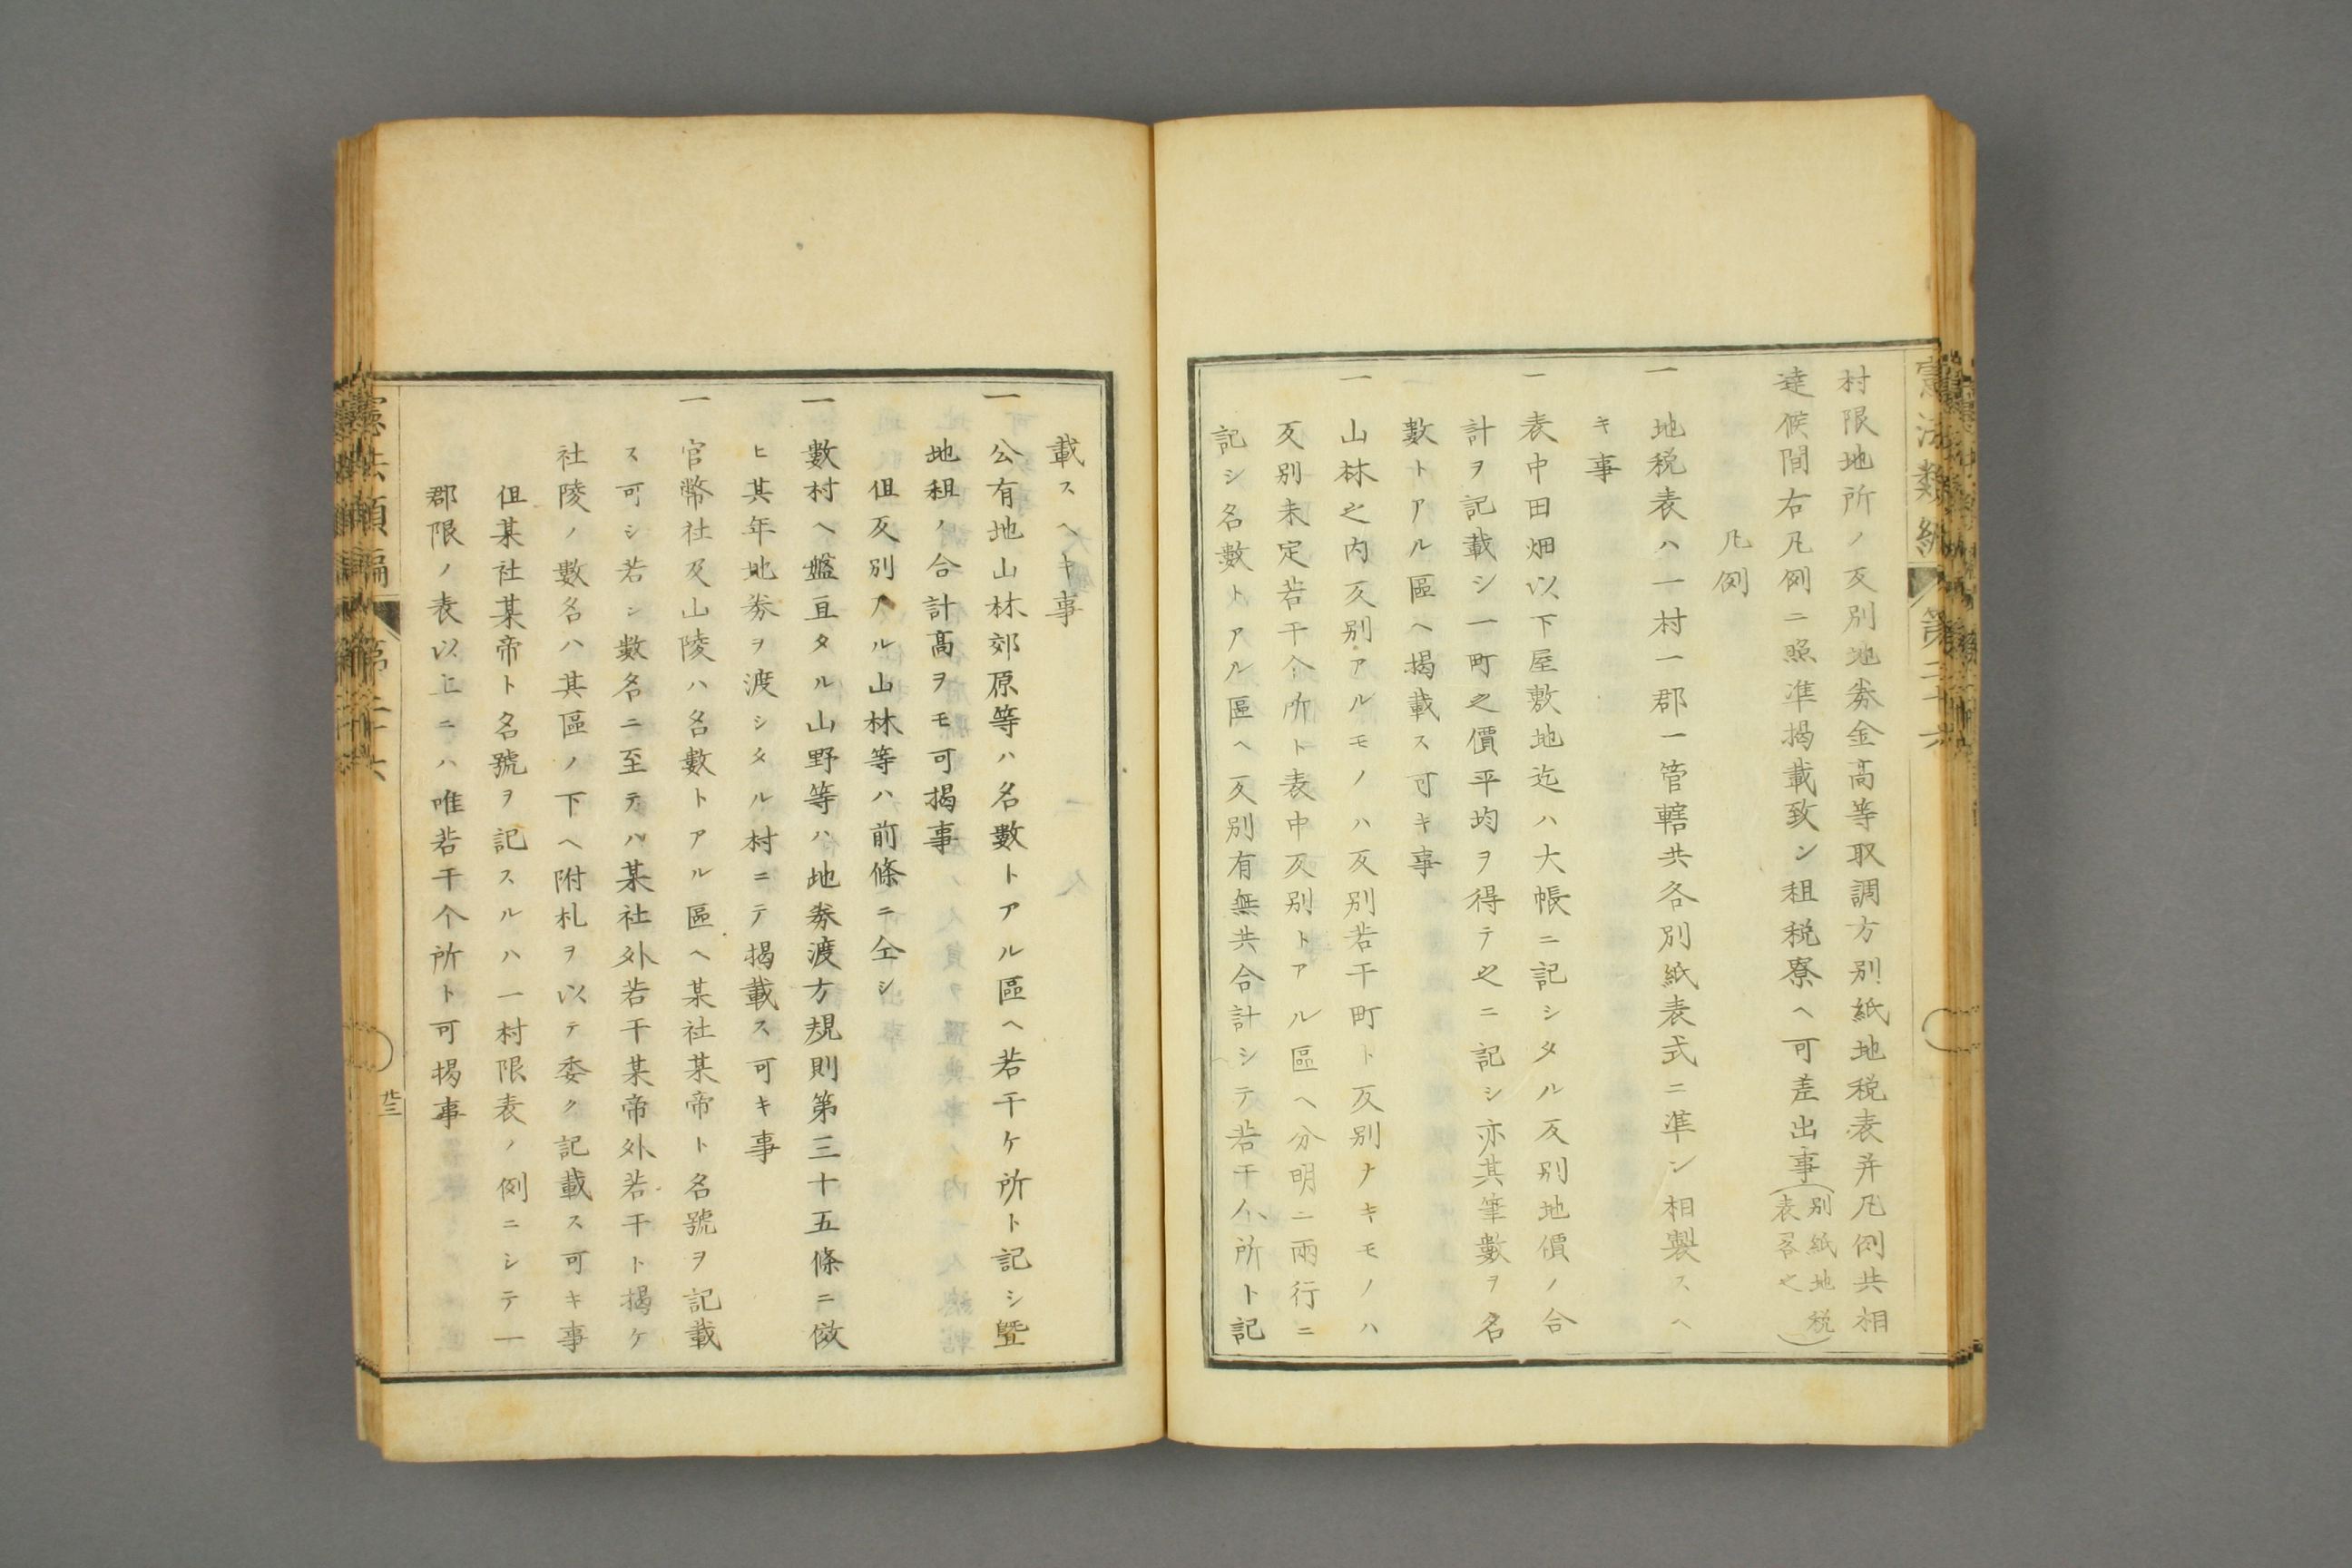 憲法類編 第二十六
村限地所ノ反別地券金高等取調方別紙地税表并凡例共相
達候間右凡例ニ照準掲載致シ租税寮ヘ可差出事(別紙地税
表畧之)
凡例
一 地税表ハ一村一郡一管轄共各別紙表式ニ準シ相製スヘ
キ事
一 表中田畑以下屋敷地迄ハ大帳ニ記シタル反別地價ノ合
計ヲ記載シ一町之價平均ヲ得テ之ニ記シ亦其筆數ヲ名
數トアル區ヘ掲載ス可キ事
一 山林之内反別アルモノハ反別若干町ト反別ナキモノハ
反別未定若干个所ト表中反別トアル區ヘ分明ニ兩行ニ
記シ名數トアル區ヘ反別有無共合計シテ若干个所ト記
載スヘキ事
一 公有地山林郊原等ハ名數トアル區ヘ若干ケ所ト記シ曁
地租ノ合計高ヲモ可掲事
但反別アル山林等ハ前條ニ仝シ
一 數村ヘ盤亘タル山野等ハ地券渡方規則第三十五條ニ倣
ヒ其年地券ヲ渡シタル村ニテ掲載ス可キ事
一 官幣社及山陵ハ名數トアル區ヘ某社某帝ト名號ヲ記載
ス可シ若シ數名ニ至テハ某社外若干某帝外若干ト掲ケ
社陵ノ數名ハ其區ノ下ヘ附札ヲ以テ委ク記載ス可キ事
但某社某帝ト名號ヲ記スルハ一村限表ノ例ニシテ一
郡限ノ表以上ニハ唯若干个所ト可掲事
憲法類編 第二十六
廿三